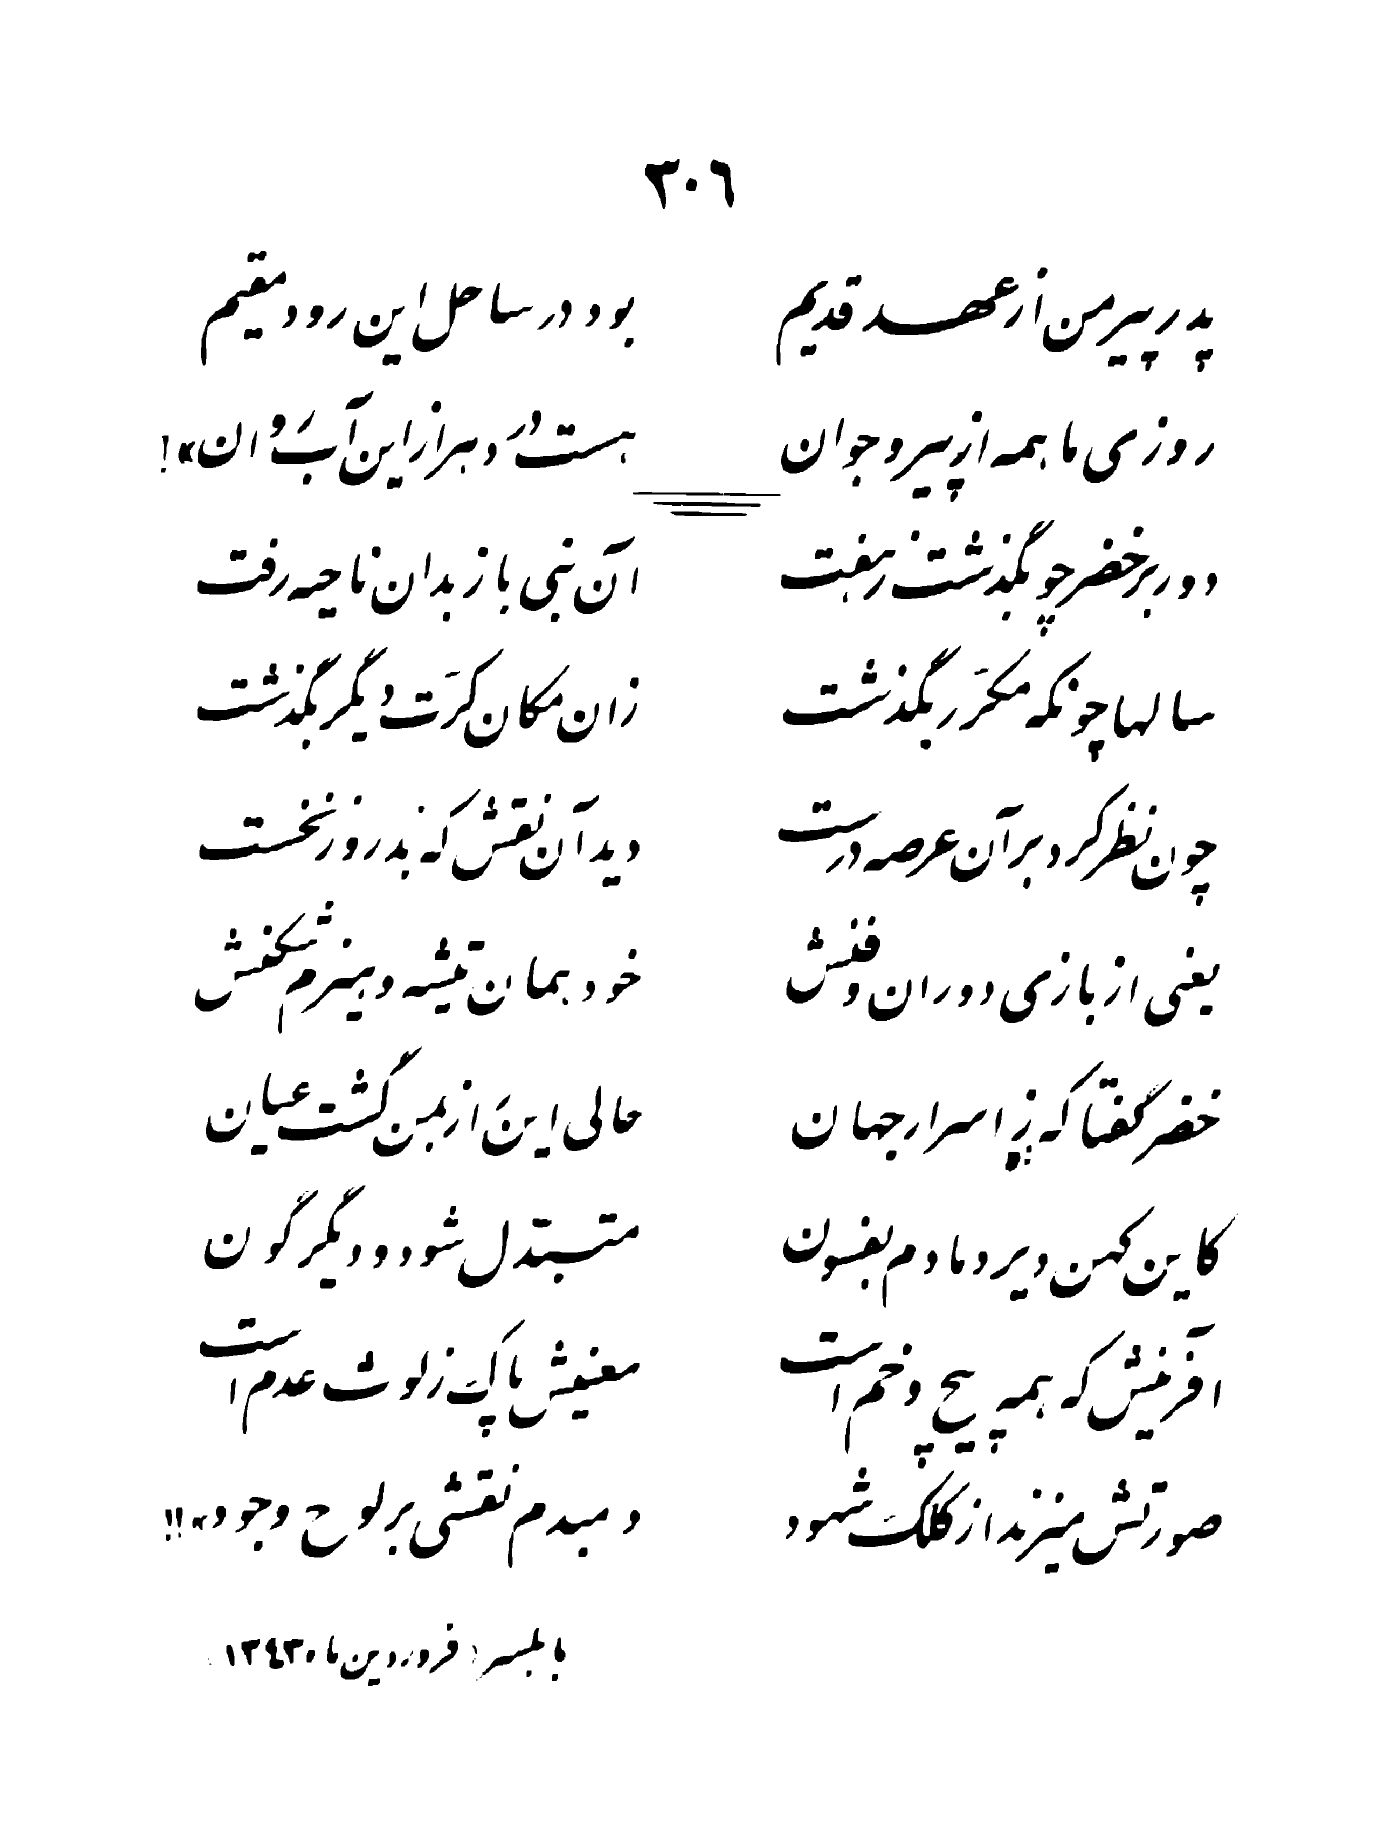 ۳۰٦
پدر پیر من از عهد قدیم بود در ساحل این رود مقیم
روزی ما همه از پیر و جوان هست در دهر از این آب روان»!
دور بر خضر چو بگذشت ز هفت آن نبی باز بدان ناحیه رفت
سالها چونکه مکرّر بگذشت زان مکان کرّت دیگر بگذشت
چون نظر کرد بر آن عرصه درست دید آن نقش که بد روز نخست
یعنی از بازی دوران و فنش خود همان تیشه و هیزم شکنش
خضر گفتا که ز اسرار جهان حالی این راز بمن گشت عیان
کاین کهن دیر دمادم بفسون متبدّل شود و دیگرگون
آفرینش که همه پیچ و خم است معنیش پاک ز لوث عدم است
صورتش میزند از کلک شهود دمبدم نقشی بر لوح وجود»!!
بابلسر: فروردین ماه ۱۳٤۳